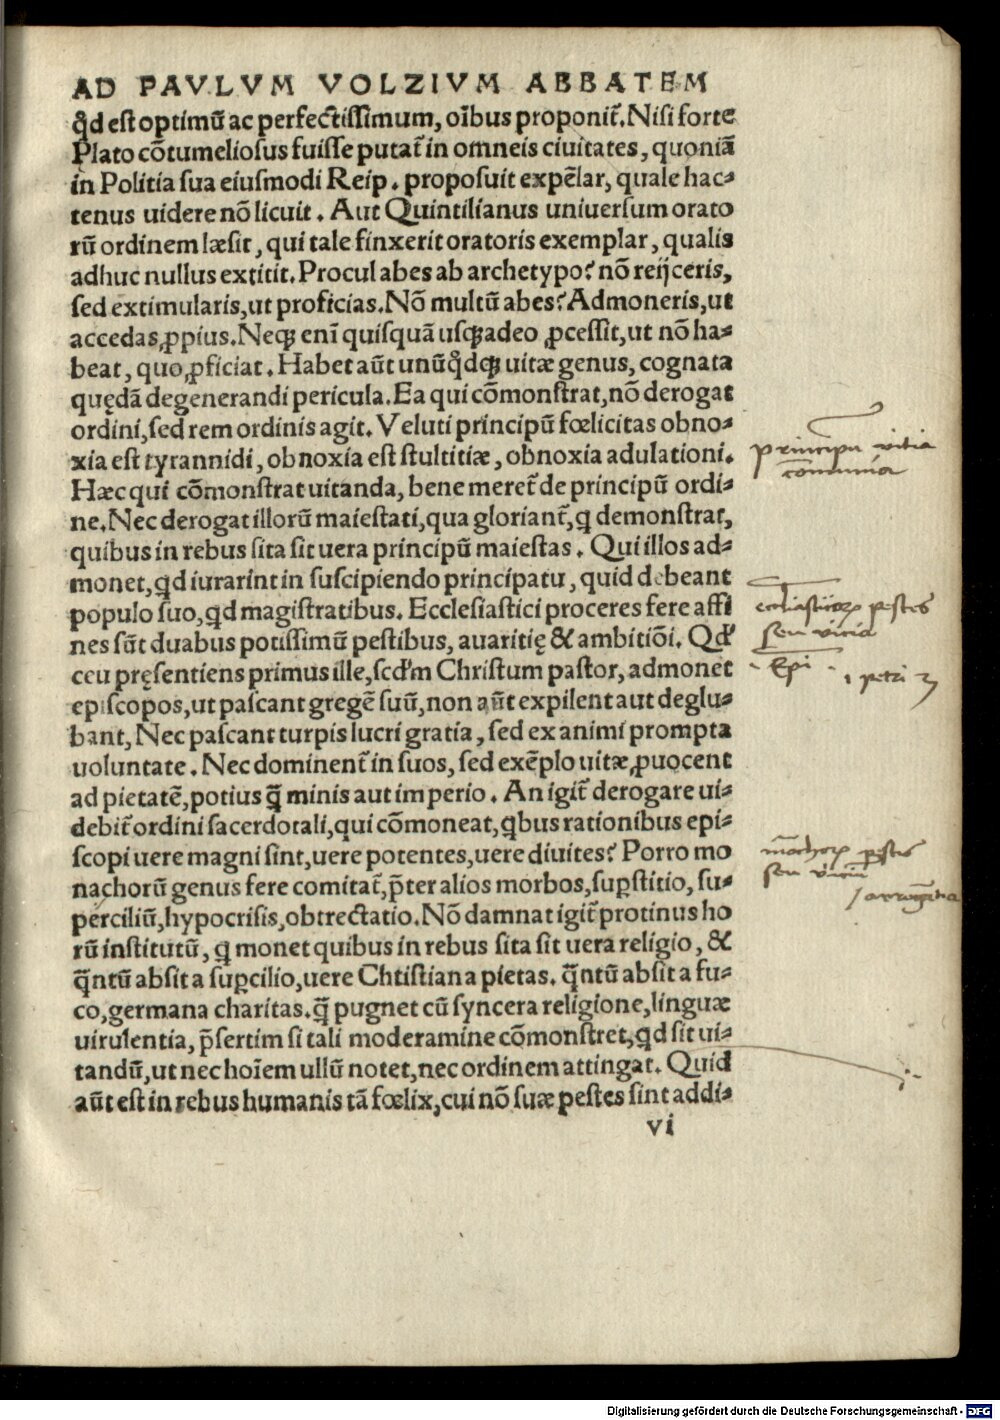 AD PAVLVM VOLZIVM ABBATEM
qd̕ est optimū ac perfectissimum, oībus proponit᷑. Nisi forte
Plato cōtumeliosus fuisse putat᷑ in omneis ciuitates, quoniā
in Politia sua eiusmodi Reip. proposuit expēlar, quale hac⸗
tenus uidere nō licuit. Aut Quintilianus uniuersum orato
rū ordinem læsit, qui tale finxerit oratoris exemplar, qualis
adhuc nullus extitit. Procul abes ab archetypo? nō reijceris,
sed extimularis, ut proficias. Nō multū abes? Admoneris, ut
accedas ꝓpius. Neqꝫ enī quisquā usqꝫadeo ꝓcessit, ut nō ha⸗
beat, quo ꝓficiat. Habet aūt unūqd̕qꝫ uitæ genus, cognata
quędā degenerandi pericula. Ea qui cōmonstrat, nō derogat
ordini, sed rem ordinis agit. Veluti principū fœlicitas obno⸗
xia est tyrannidi, obnoxia est stultitiæ, obnoxia adulationi.
Hæc qui cōmonstrat uitanda, bene meret᷑ de principū ordi⸗
ne. Nec derogat illorū maiestati, qua gloriant᷑, q demonstrat,
quibus in rebus sita sit uera principū maiestas. Qui illos ad⸗
monet, qd iurarint in suscipiendo principatu, quid debeant
populo suo, qd magistratibus. Ecclesiastici proceres fere affi
nes sūt duabus potissimū pestibus, auaritię & ambitiōi. Qd̕
ceu pręsentiens primus ille, scd̕m Christum pastor, admonet
episcopos, ut pascant gregē suū, non aūt expilent aut deglu⸗
bant, Nec pascant turpis lucri gratia, sed ex animi prompta
uoluntate. Nec dominent᷑ in suos, sed exēplo uitæ, ꝓuocent
ad pietatē, potius q̄ minis aut imperio. An igit᷑ derogare ui⸗
debit᷑ ordini sacerdotali, qui cōmoneat, qbus rationibus epi⸗
scopi uere magni sint, uere potentes, uere diuites? Porro mo
nachorū genus fere comitat᷑, p̄ter alios morbos, suꝑstitio, su⸗
perciliū, hypocrisis, obtrectatio. Nō damnat igit᷑ protinus ho
rū institutū, q monet quibus in rebus sita sit uera religio, &
q̄ntū absit a suꝑcilio, uere Chtistiana pietas. q̄ntū absit a fu⸗
co, germana charitas. q̄ pugnet cū syncera religione, linguæ
uirulentia, p̄sertim si tali moderamine cōmonstret, qd sit ui⸗
tandū, ut nec hoīem ullū notet, nec ordinem attingat. Quid
aūt est in rebus humanis tā fœlix, cui nō suæ pestes sint addi⸗
vi
principū vitia
communia
ecclīasticoꝝ pestes
seu vicia
Epi . 1 petri
mōchoꝝ pestes
seu vicia
arrogātia
Digitalisierung gefördert durch die Deutsche Forschungsgemeinschaft - DFG